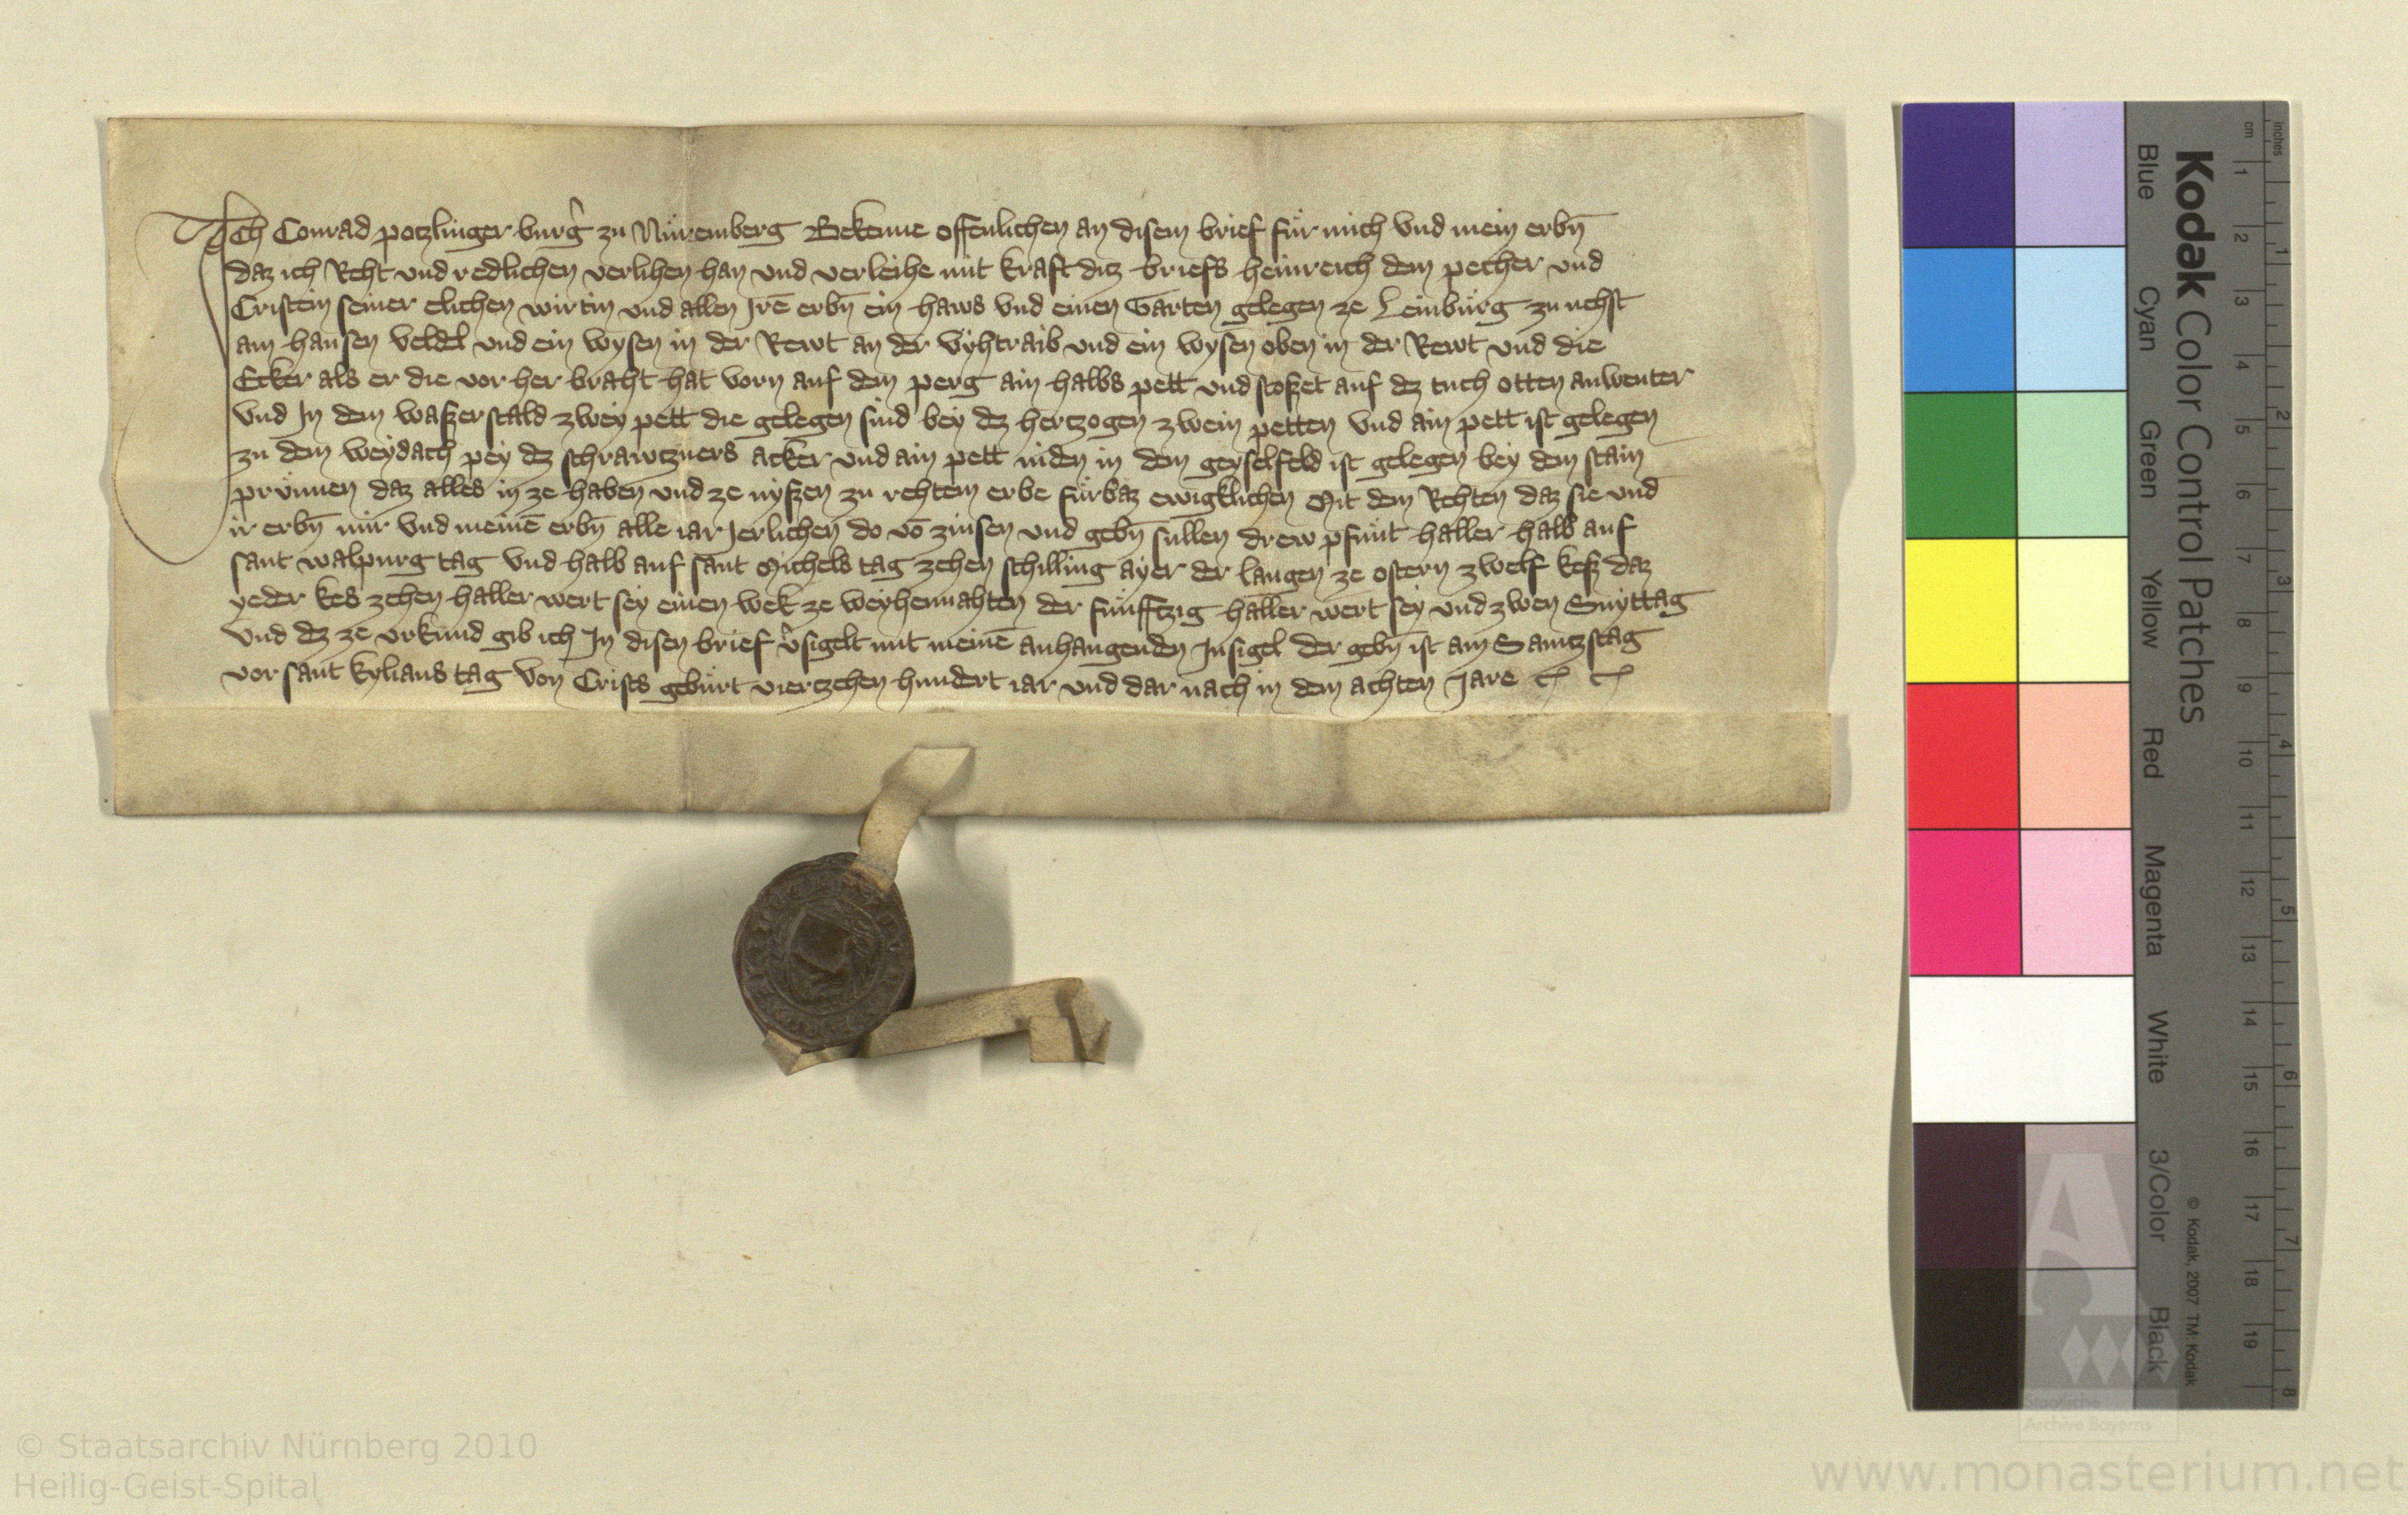 Ich Conrad potzlinger burg̉ zu Nuremberg Bekenne offenlichen an disem brief fur mich vnd mein erbn̄
daz ich Reht vnd redlichen verlihen han vnd verleihe mit kraft ditz briefs heinreich dem pecher vnd
Cristein seiner elichen wirtin vnd allen Jrē erbn̄ ein haws vnd einen Garten gelegen ze Leinburg zu nehst
am hansen veldel vnd ein wysen in der Rewt an der vyhtraib vnd ein wysen oben in der Rewt vnd die
Ecker als er die vor her braht hat vorn auf dem perg ain halbs pett vnd stoszet auf dz tuch otten anwenter
vnd In dem waszerstald zwey pett die gelegen sind bey dz hertzogen zwein petten vnd ain pett ist gelegen
zu dem weydach pey dz schrawtzners acker vnd ain pett niden in dem geyselfeld ist gelegen bey dem stain
prunnen daz alles in ze haben vnd ze nyszen zu rehtem erbe furbaz ewigklichen Mit dem Rehten daz sie vnd
ir erbn̄ mir vnd meinē erbn̄ alle iar Jerlichen do vō zinsen vnd gebn̄ sullen drew pfunt haller halb auf
sant walpurg tag vnd halb auf sant Michels tag zehen schilling ayer der langen ze ostern zwelf kesz daz
yeder kes zehen haller wert sey einen wek ze weyhennahten der funfftzig haller wert sey vnd zwen Snyttag
vnd dz ze vrkund gib ich In disen brief v̉sigelt mit meinē anhangenden Insigel der gebn̄ ist am Samtzstag
vor sant kylians tag von Crists geburt viertzehen hundert iar vnd dar nach in dem achten Jare
Kodak Color Control Patches
Blue Cyan Green Yellow Red Magenta White 3/Color Black
cm 1 2 3 4 5 6 7 8 9 10 11 12 13 14 15 16 17 18 19
inches 1 2 3 4 5 6 7 8
© Kodak, 2007 TM: Kodak
Staatliche
Archive Bayerns
© Staatsarchiv Nürnberg 2010
Heilig-Geist-Spital
www.monasterium.net